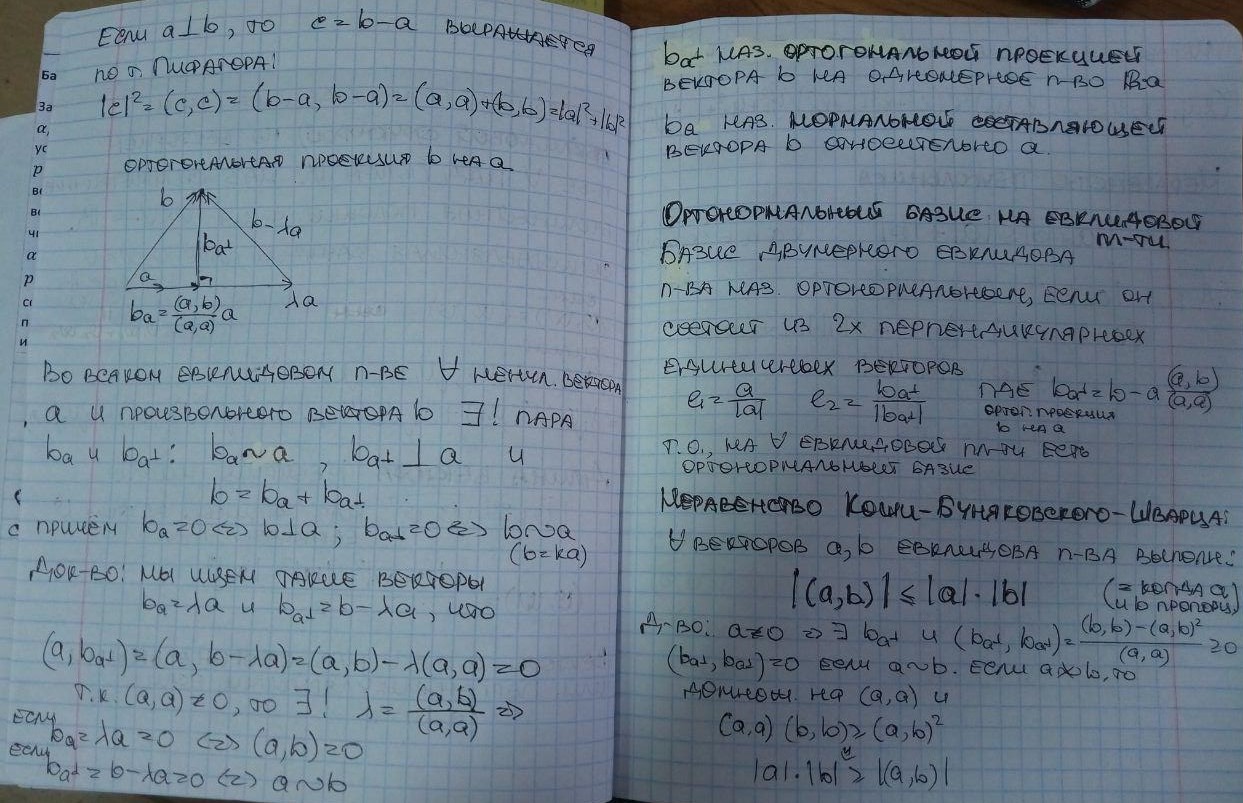 Если a⊥b, то c = b-a выражается
по т. Пифагора:
|c|² = (c,c) = (b-a, b-a) = (a,a)+(b,b) = |a|²+|b|²
ортогональная проекция b на a
b
b-λa
ba⊥
a
ba = (a,b)/(a,a) a
λa
Во всяком евклидовом п-ве ∀ ненул. вектора
a и произвольного вектора b ∃! пара
ba и ba⊥: ba~a, ba⊥ ⊥ a и
b = ba + ba⊥
причём ba=0 <=> b⊥a; ba⊥=0 <=> b~a
(b=ka)
Док-во: мы ищем такие векторы
ba=λa и ba⊥=b-λa, что
(a,ba⊥)=(a, b-λa)=(a,b)-λ(a,a)=0
т.к. (a,a)≠0, то ∃! λ = (a,b)/(a,a) =>
если ba=λa=0 <=> (a,b)=0
если ba⊥=b-λa=0 <=> a~b
Ба
За
а,
ус
р
ві
ві
чі
а
р
сі
п
и
ba⊥ наз. ортогональной проекцией
вектора b на одномерное п-во Ra
ba наз. нормальной составляющей
вектора b относительно a.
Ортонормальный базис на евклидовой
пл-ти
Базис двумерного евклидова
п-ва наз. ортонормальным, если он
состоит из 2х перпендикулярных
единичных векторов
e₁ = a/|a| e₂ = ba⊥/|ba⊥| где ba⊥ = b - a (a,b)/(a,a)
ортог. проекция
b на a
т.о., на ∀ евклидовой пл-ти есть
ортонормальный базис
Неравенство Коши-Буняковского-Шварца:
∀ векторов a,b евклидова п-ва выполн:
|(a,b)| ≤ |a|·|b| (= когда a
и b пропорц)
Д-во: a≠0 => ∃ ba⊥ и (ba⊥, ba⊥) = (b,b)-(a,b)²/(a,a) ≥0
(ba⊥,ba⊥)=0 если a~b. Если a≁b, то
домнож. на (a,a) и
(a,a) (b,b) ≥ (a,b)²
|a|·|b| ≥ |(a,b)|